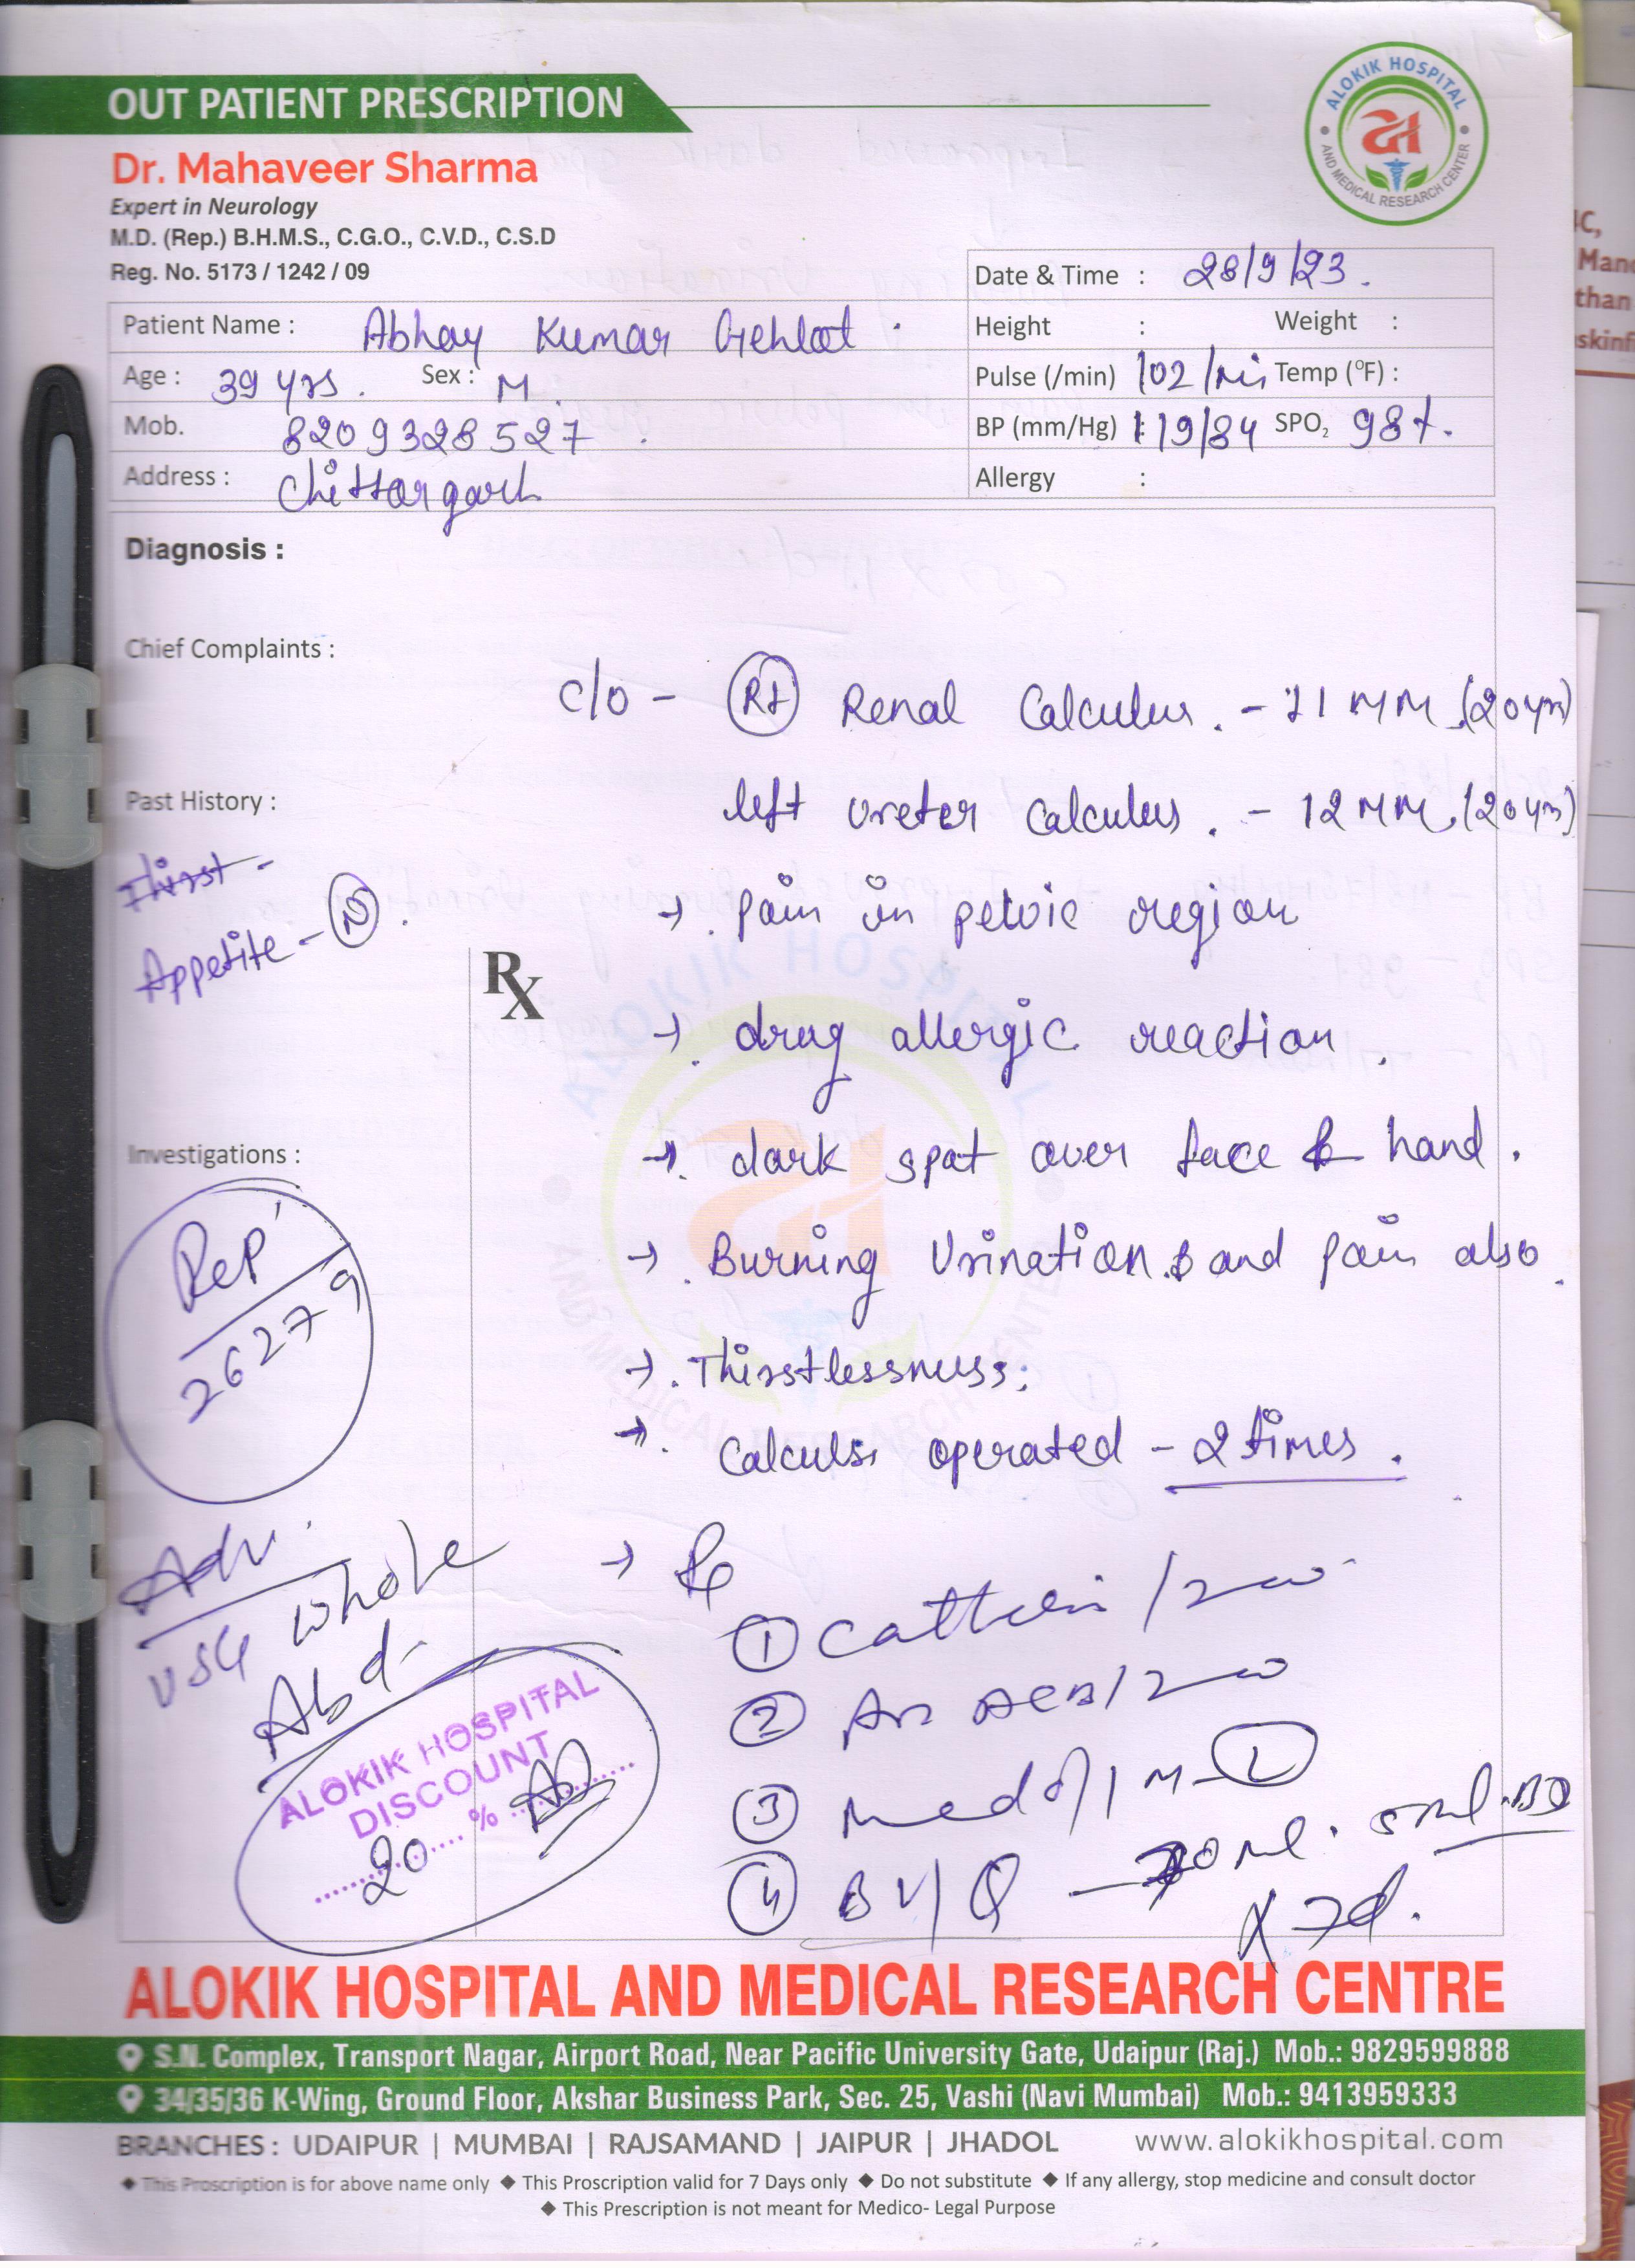 OUT PATIENT PRESCRIPTION
ALOKIK HOSPITAL
AND MEDICAL RESEARCH CENTER
Dr. Mahaveer Sharma
Expert in Neurology
M.D. (Rep.) B.H.M.S., C.G.O., C.V.D., C.S.D
Reg. No. 5173 / 1242 / 09
Date & Time : 28/9/23.
Patient Name : Abhay Kumar Gehlot
Height : Weight :
Age : 39 yrs. Sex : M.
Pulse (/min) 102/min Temp (°F) :
Mob. 8209328527
BP (mm/Hg) : 119/84 SPO₂ 98%.
Address : Chittorgarh
Allergy :
Diagnosis :
Chief Complaints :
c/o - Rt Renal Calculus. - 11 MM (20yrs)
Past History :
left ureter Calculus. - 12 MM. (20yrs)
Thirst -
Appetite - N.
→ Pain in pelvic region
Rx
→ drug allergic reaction.
→ dark spot over face & hand.
Investigations :
→ Burning Urination & and Pain also.
→ Thirstlessness;
→ Calculsi operated - 2 times.
Rep
26279
Adv.
USG whole
Abd.
→ Rp
① /200
② /200
③ Med / 1M - ①
④ BV/Q - 30 ml. 5ml. BD
x 7d.
ALOKIK HOSPITAL
DISCOUNT
20 %
ALOKIK HOSPITAL AND MEDICAL RESEARCH CENTRE
S.N. Complex, Transport Nagar, Airport Road, Near Pacific University Gate, Udaipur (Raj.) Mob.: 9829599888
34/35/36 K-Wing, Ground Floor, Akshar Business Park, Sec. 25, Vashi (Navi Mumbai) Mob.: 9413959333
BRANCHES : UDAIPUR | MUMBAI | RAJSAMAND | JAIPUR | JHADOL www.alokikhospital.com
◆ This Proscription is for above name only ◆ This Proscription valid for 7 Days only ◆ Do not substitute ◆ If any allergy, stop medicine and consult doctor
◆ This Prescription is not meant for Medico- Legal Purpose